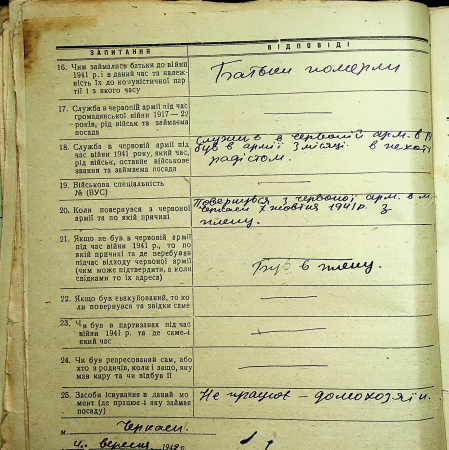 ЗАПИТАННЯ
ВІДПОВІДІ
16. Чим займались батьки до війни
1941 р. і в даний час та належ-
ність їх до комуністичної пар-
тії і з якого часу
Батьки померли
17. Служба в червоній армії під час
громадянської війни 1917—22
років, рід військ та займаєма
посада
18. Служба в червоній армії під
час війни 1941 року, який час,
рід військ, останнє військове
звання та займаєма посада
Служив в червоній арм. в
був в армії 3 місяці в пехоті
радістом.
19. Військова спеціальність
№ (ВУС)
20. Коли повернувся з червоної
армії та по якій причині
Повернувся з червоної арм. в м.
Черкаси 7 жовтня 1941 р. з
плену.
21. Якщо не був в червоній армії
під час війни 1941 р., то по
якій причині та де перебував
підчас відходу червоної армії
(чим може підтвердити, а коли
свідками то їх адреса)
Був в плену.
22. Якщо був евакуйований, то ко-
ли повернувся та звідки саме
23. Чи був в партизанах під час
війни 1941 р. та де саме і
який час
24. Чи був репресований сам, або
хто з родичів, коли і защо, яку
мав кару та чи відбув її
25. Засоби існування в даний мо-
мент (де працює і яку займає
посаду)
Не працює – домохозяїн.
м. Черкаси.
вересня